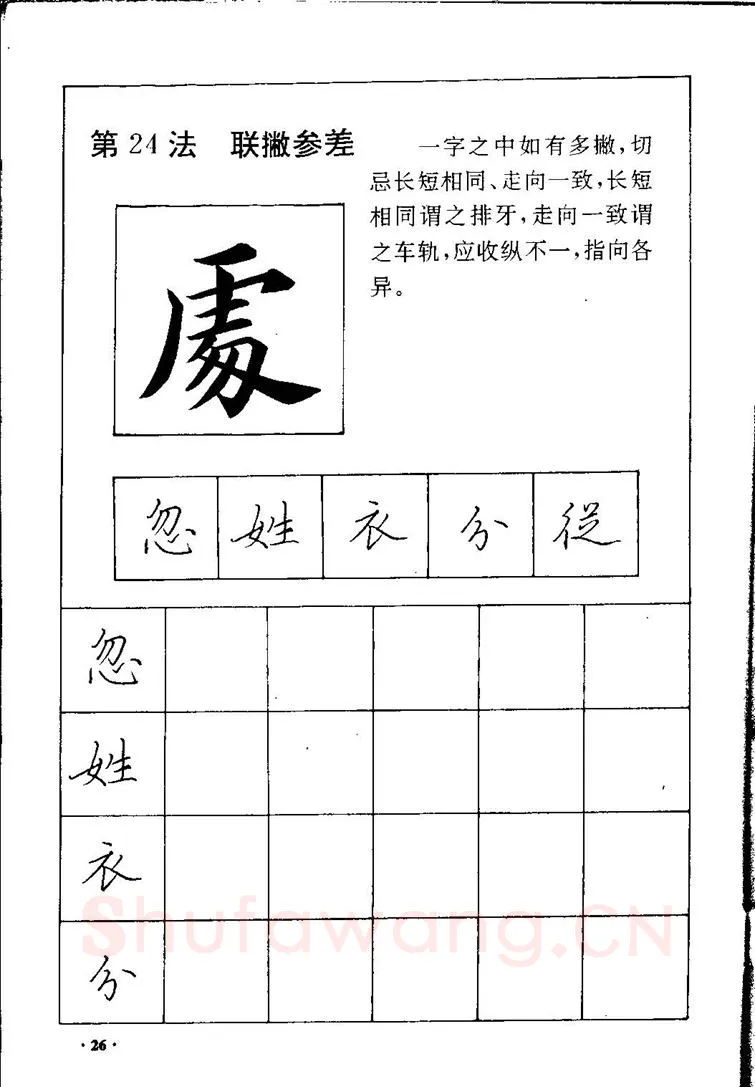 第24法 联撇参差
一字之中如有多撇,切
忌长短相同、走向一致,长短
相同谓之排牙,走向一致谓
之车轨,应收纵不一,指向各
异。
處
忽 姓 衣 分 從
忽
姓
衣
分
Shufawang.CN
·26·